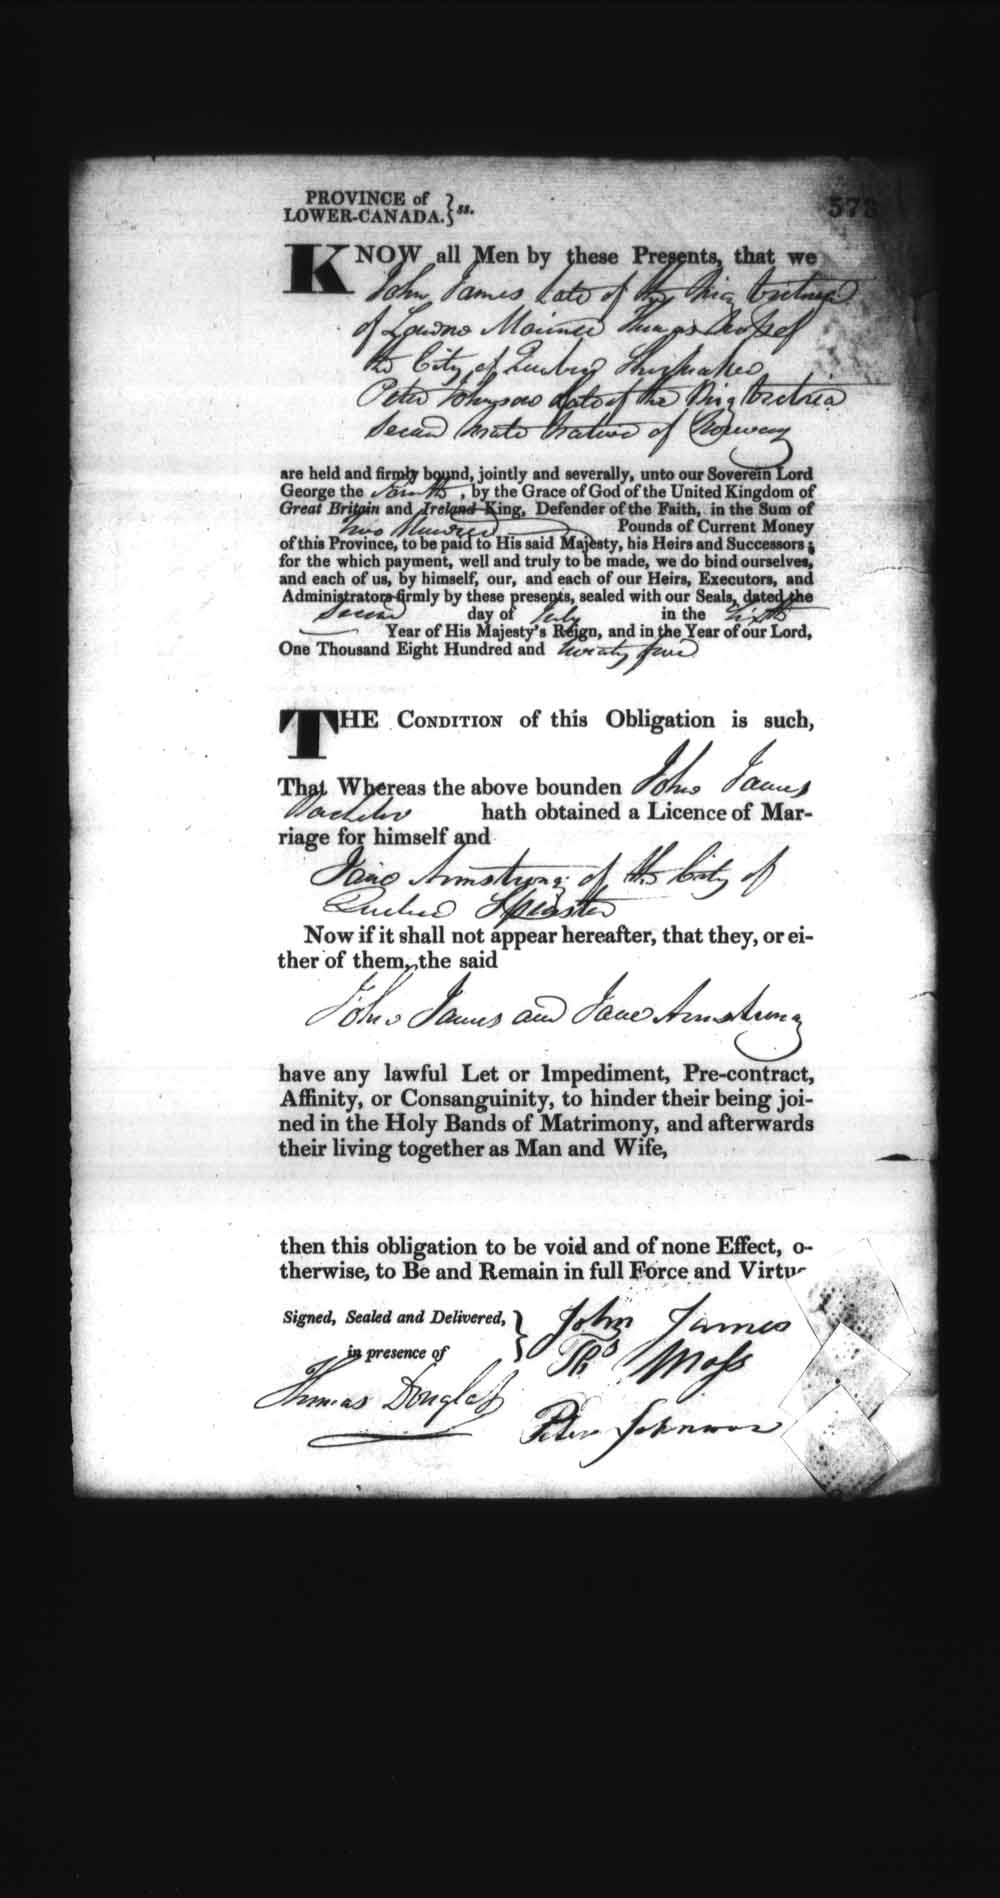 PROVINCE of
LOWER-CANADA. } ss.
573
KNOW all Men by these Presents, that we
John James late of the Brig
of Mariner Thomas Moss of
the City of Quebec
Peter Johnson late of the Brig
Second Mate Native of Norway
are held and firmly bound, jointly and severally, unto our Soverein Lord
George the Fourth, by the Grace of God of the United Kingdom of
Great Britain and Ireland King, Defender of the Faith, in the Sum of
Two Hundred Pounds of Current Money
of this Province, to be paid to His said Majesty, his Heirs and Successors;
for the which payment, well and truly to be made, we do bind ourselves,
and each of us, by himself, our, and each of our Heirs, Executors, and
Administrators firmly by these presents, sealed with our Seals, dated the
Second day of July in the Sixth
Year of His Majesty's Reign, and in the Year of our Lord,
One Thousand Eight Hundred and twenty five
THE CONDITION of this Obligation is such,
That Whereas the above bounden John James
Bachelor hath obtained a Licence of Mar-
riage for himself and
Jane Armstrong of the City of
Quebec Spinster
Now if it shall not appear hereafter, that they, or ei-
ther of them, the said
John James and Jane Armstrong
have any lawful Let or Impediment, Pre-contract,
Affinity, or Consanguinity, to hinder their being joi-
ned in the Holy Bands of Matrimony, and afterwards
their living together as Man and Wife,
then this obligation to be void and of none Effect, o-
therwise, to Be and Remain in full Force and Virtue
Signed, Sealed and Delivered, } John James
in presence of Ths Moss
Thomas Douglass
Peter Johnson